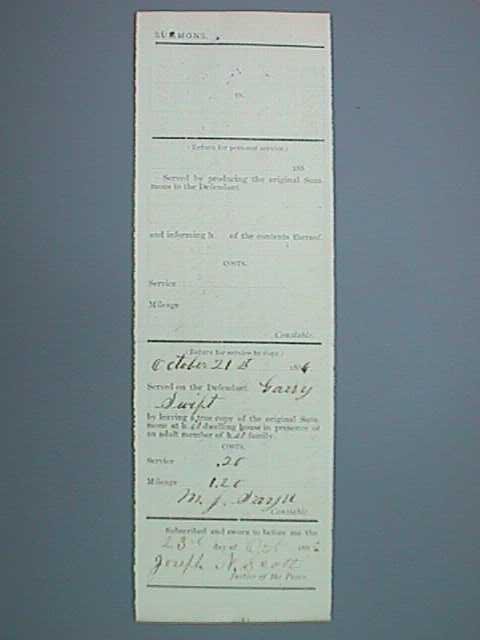 SUMMONS.
vs.
(Return for personal service.)
188
Served by producing the original Sum-
mons to the Defendant
and informing h of the contents thereof.
COSTS.
Service
Mileage
Constable.
(Return for service by copy.)
October 21st 188
Served on the Defendant Garry
Swift
by leaving a true copy of the original Sum-
mons at his dwelling house in presence of
an adult member of his family.
COSTS.
Service .20
Mileage 1.20
M. J.
Constable.
Subscribed and sworn to before me this
23d day of Oct 188
Joseph N. Scott
Justice of the Peace.